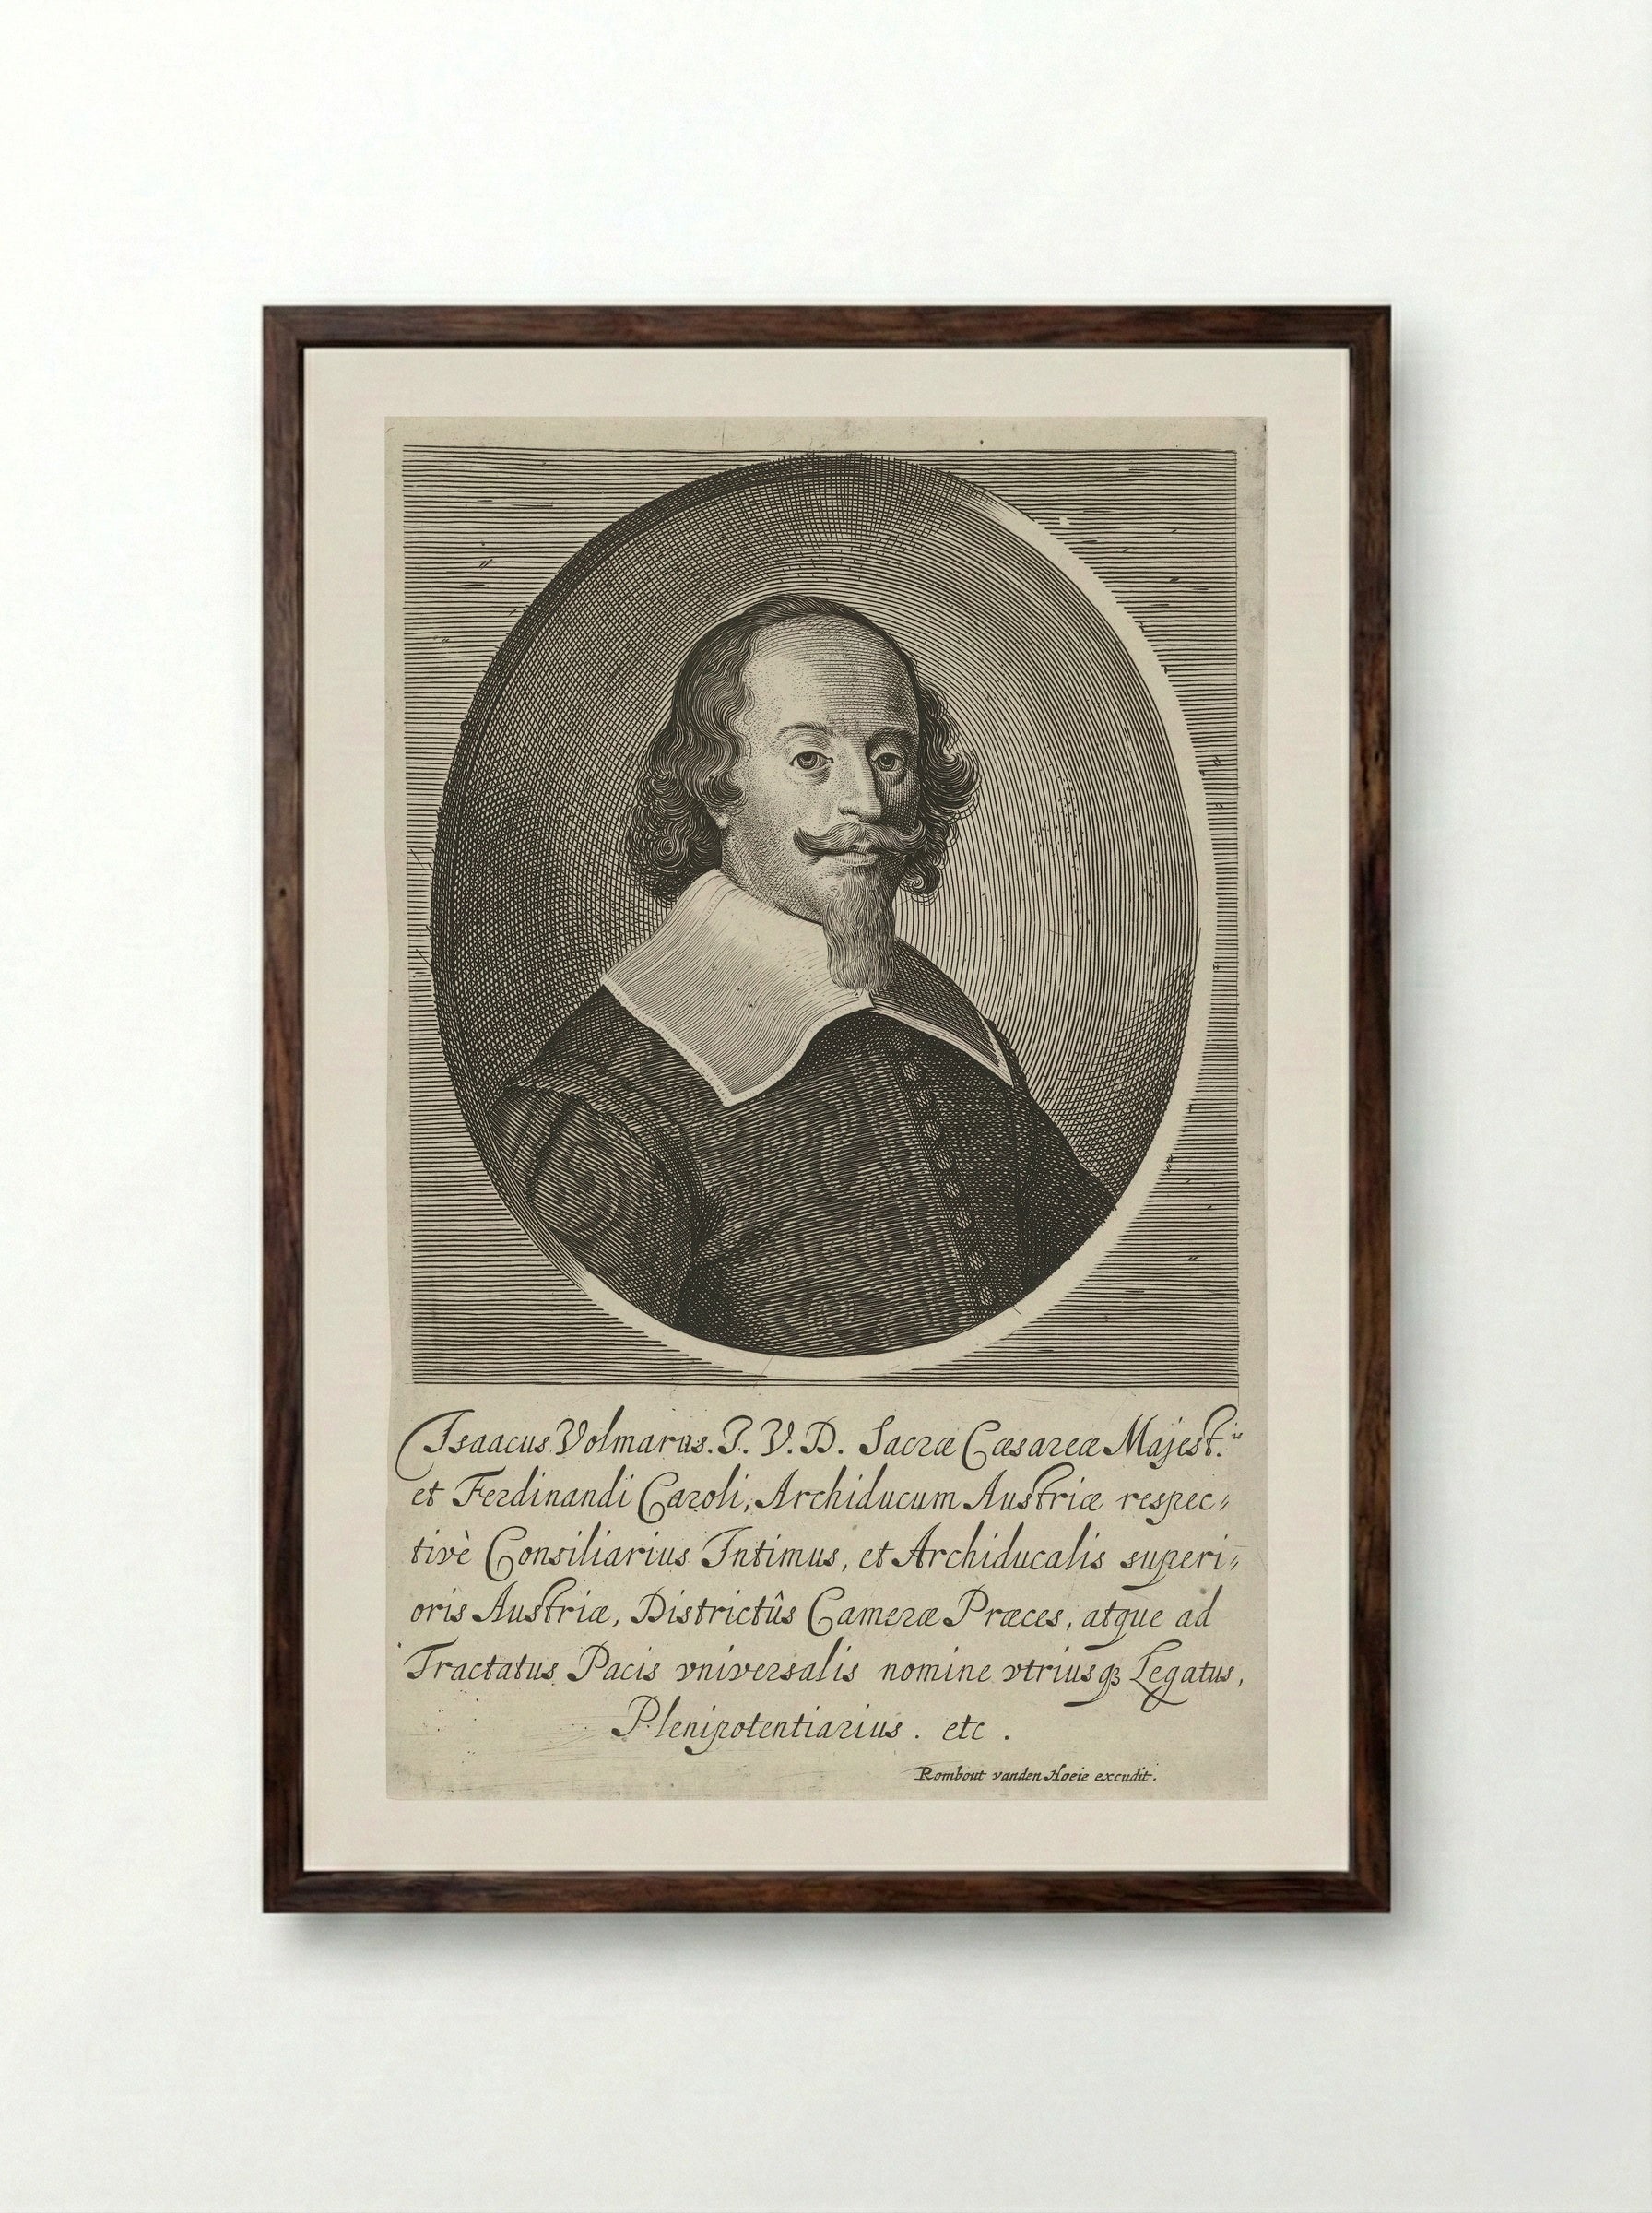 Isaacus Volmarus. J. V. D. Sacræ Cæsareæ Majest.is
et Ferdinandi Caroli, Archiducum Austriæ respec=
tivè Consiliarius Intimus, et Archiducalis superi=
oris Austriæ, Districtûs Cameræ Præces, atque ad
Tractatus Pacis vniversalis nomine vtriusqȝ Legatus,
Plenipotentiarius. etc.
Rombout vanden Hoeie excudit.